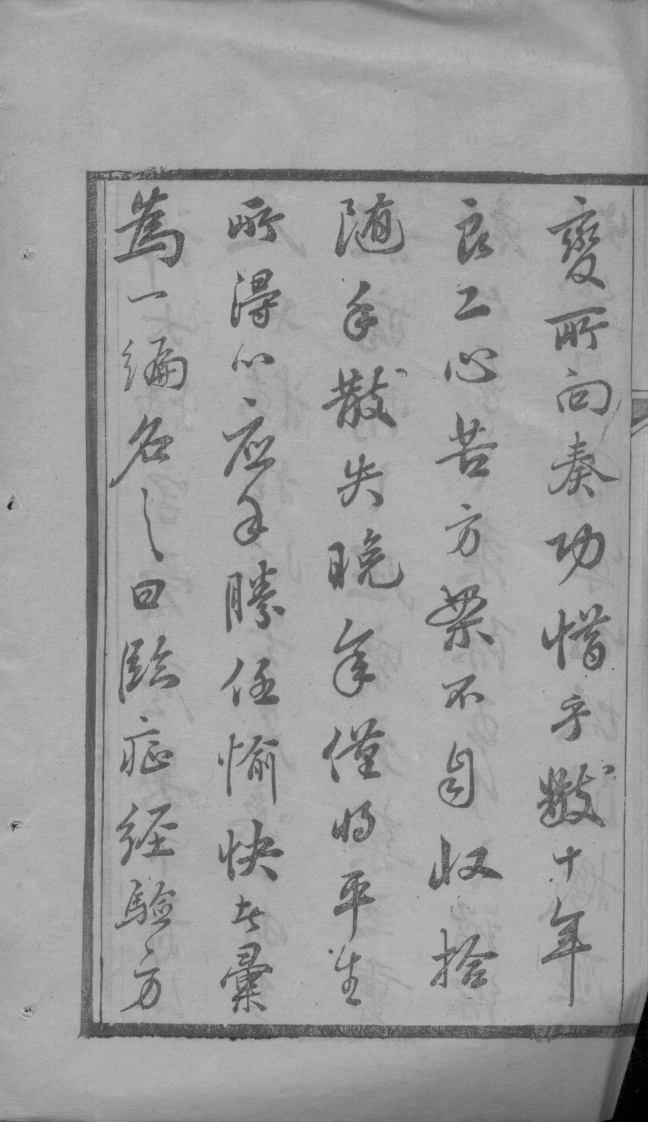 變所向奏功惜乎數十年
良工心苦方案不自收拾
随手散失晚年僅将平生
所得心应手勝任愉快者彙
為一編名之曰臨症经驗方